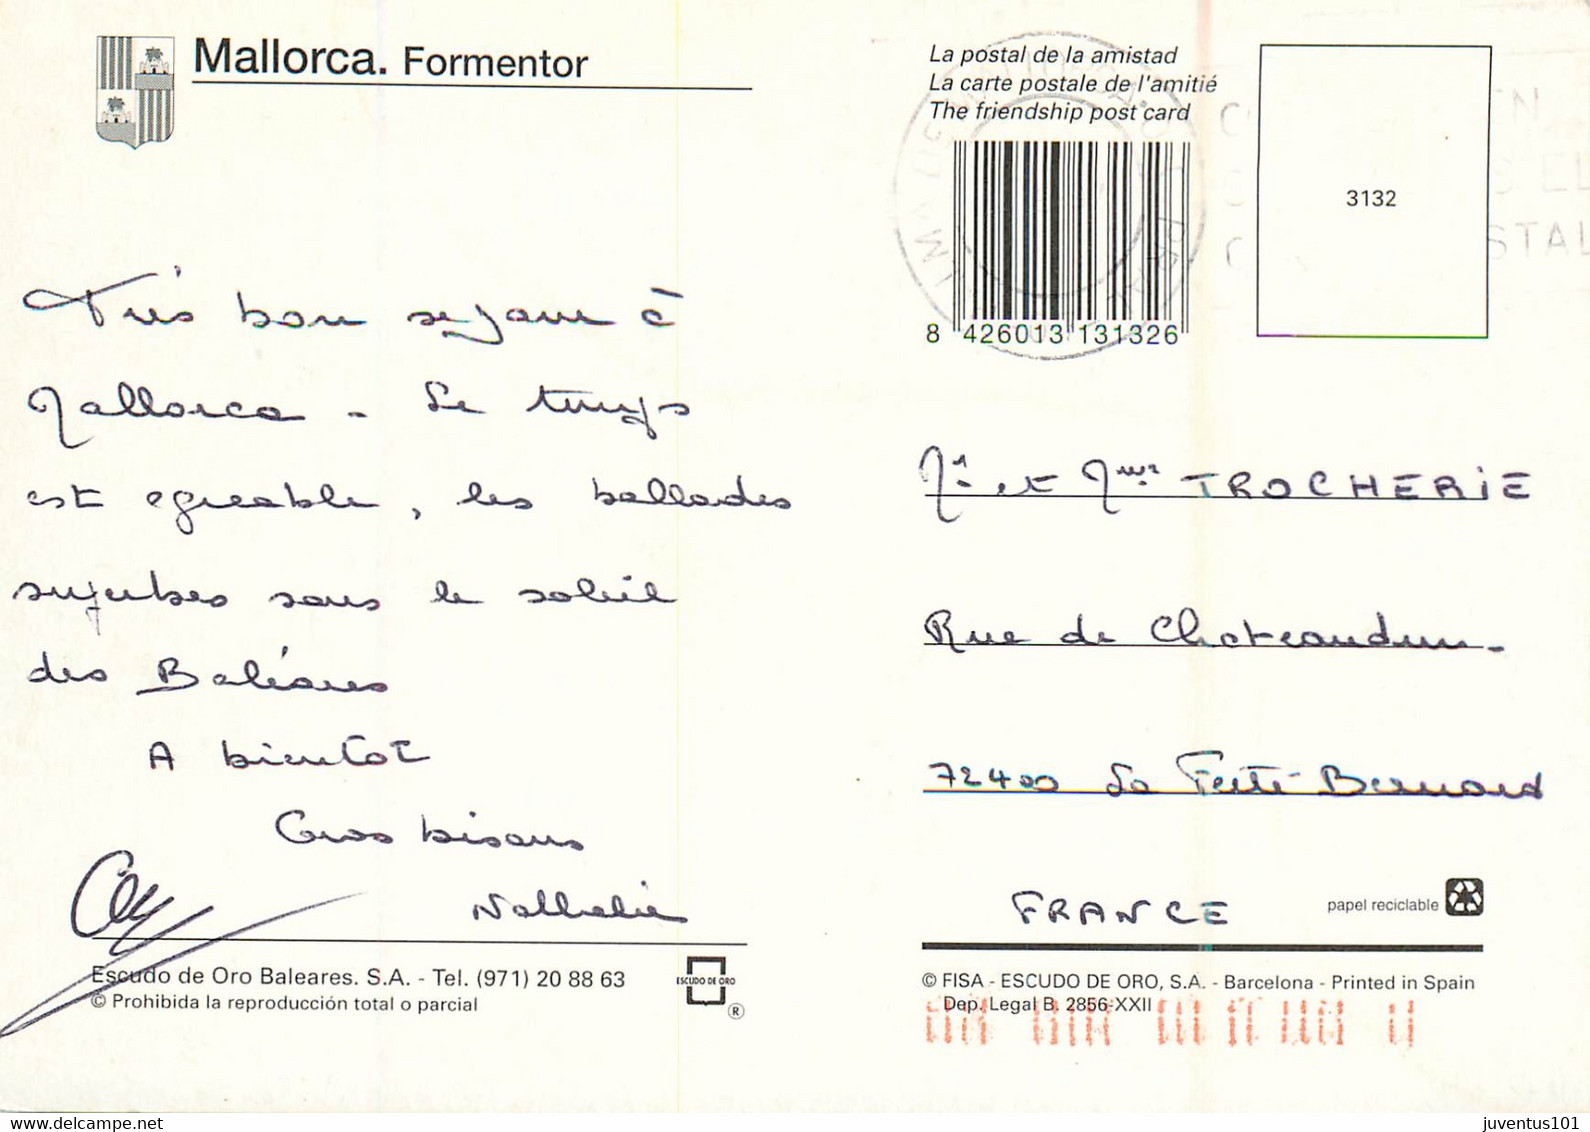 Mallorca. Formentor
Très bon sejour à
Mallorca - Le temps
est agreable, les ballades
superbes sous le soleil
des Baléares
A bientot
Gros bisous
Nathalie
Escudo de Oro Baleares. S.A. - Tel. (971) 20 88 63
© Prohibida la reproducción total o parcial
ESCUDO DE ORO
®
La postal de la amistad
La carte postale de l'amitié
The friendship post card
8 426013 131326
3132
STAL
Mr et Mme TROCHERIE
Rue de Chateaudun -
72400 La Ferté Bernard
FRANCE
papel reciclable
© FISA - ESCUDO DE ORO, S.A. - Barcelona - Printed in Spain
Dep. Legal B. 2856-XXII
delcampe.net
juventus101